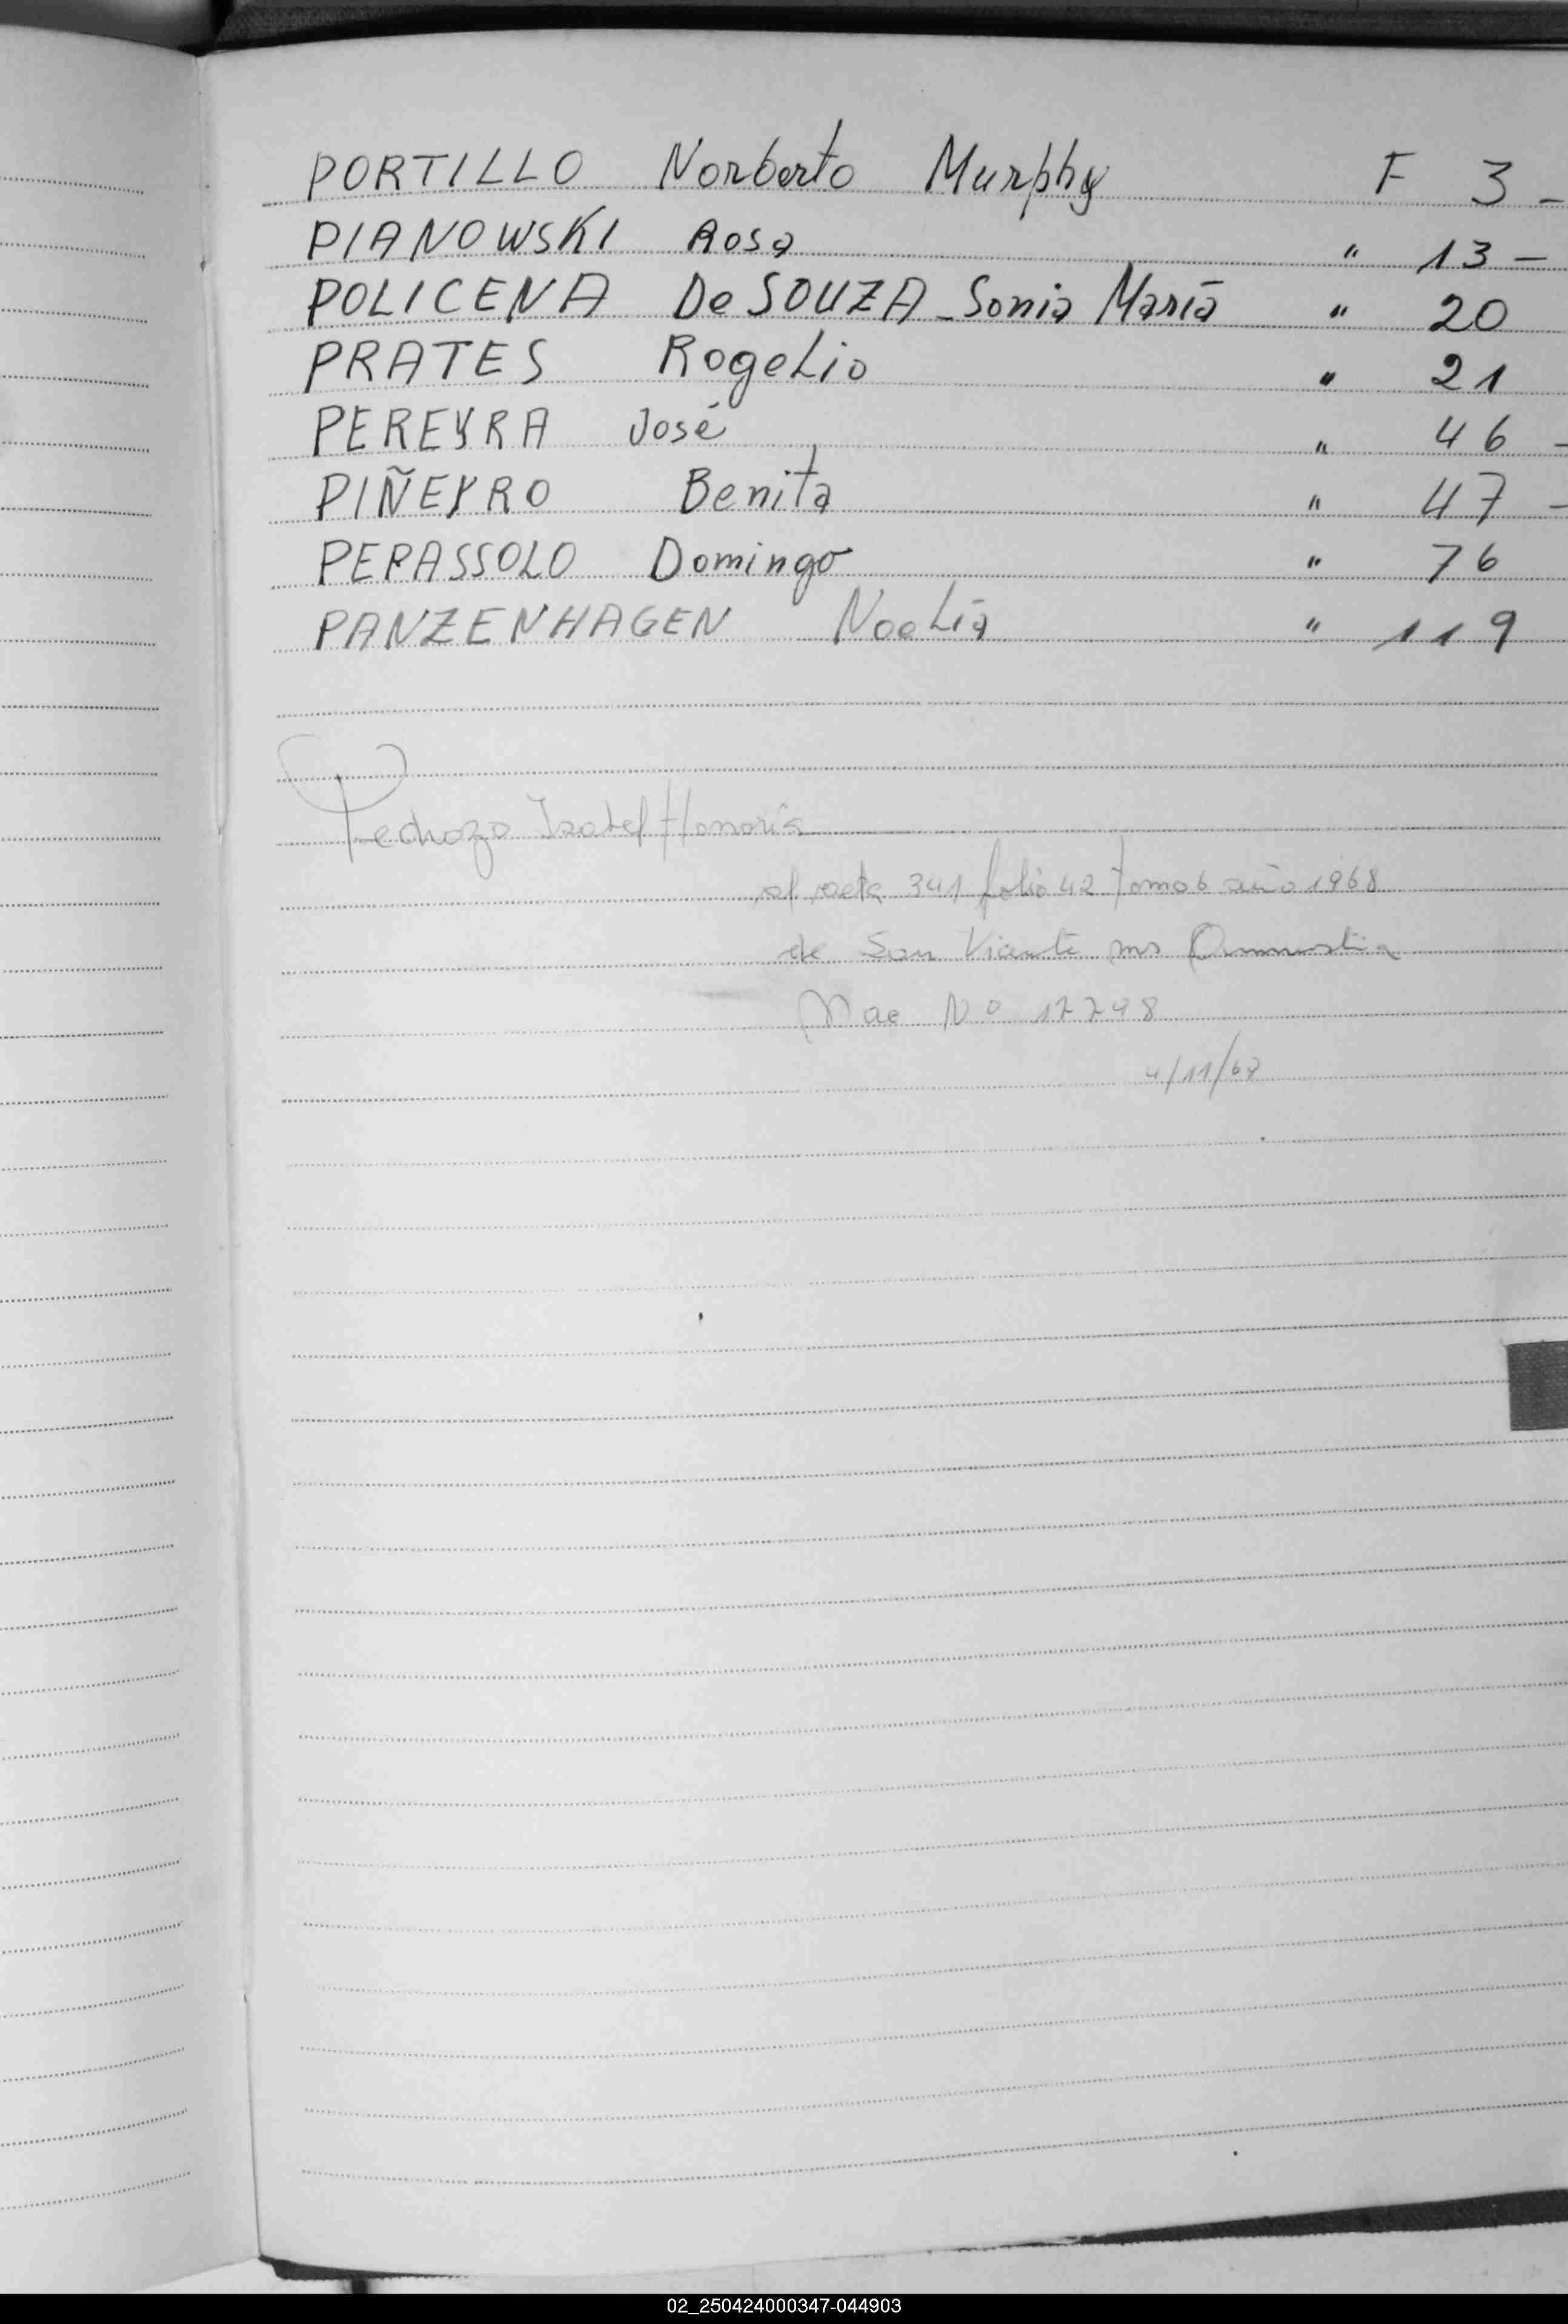 PORTILLO Norberto Murphy F 3 -
PIANOWSKI Rosa " 13 -
POLICENA De SOUZA - Sonia María " 20
PRATES Rogelio " 21
PEREYRA José " 46 -
PIÑEYRO Benita " 47 -
PERASSOLO Domingo " 76
PANZENHAGEN Noelia " 119
Pedrozo Isabel Honoria
al acta 341 folio 42 tomo 6 año 1968
de San Vicente ms
Nac Nº
4/11/68
02_250424000347-044903